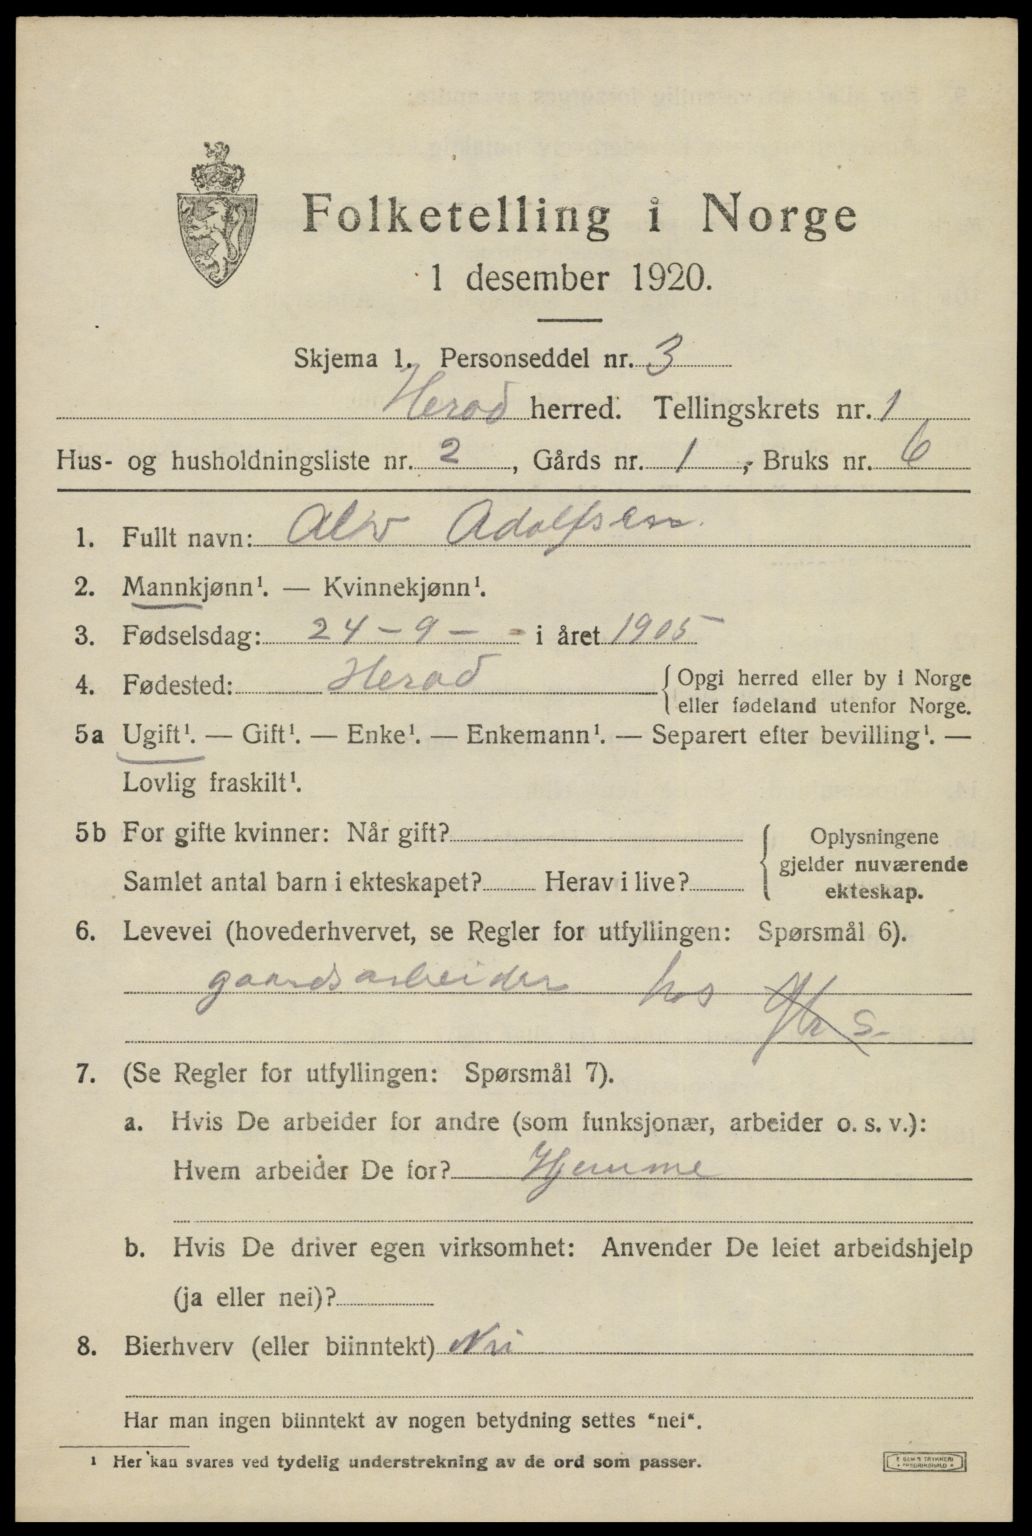 Folketelling i Norge
1 desember 1920.
Skjema 1. Personseddel nr. 3
Herad herred. Tellingskrets nr. 1
Hus- og husholdningsliste nr. 2, Gårds nr. 1, Bruks nr. 6
1. Fullt navn: Alv Adolfsen.
2. Mannkjønn¹. — Kvinnekjønn¹.
3. Fødselsdag: 24-9- i året 1905
4. Fødested: Herad {Opgi herred eller by i Norge
eller fødeland utenfor Norge.
5a Ugift¹. — Gift¹. — Enke¹. — Enkemann¹. — Separert efter bevilling¹. —
Lovlig fraskilt¹.
5b For gifte kvinner: Når gift? { Oplysningene
gjelder nuværende
Samlet antal barn i ekteskapet? Herav i live? ekteskap.
6. Levevei (hovederhvervet, se Regler for utfyllingen: Spørsmål 6).
gaardsarbeider hos
s.
7. (Se Regler for utfyllingen: Spørsmål 7).
a. Hvis De arbeider for andre (som funksjonær, arbeider o. s. v.):
Hvem arbeider De for? Hjemme
b. Hvis De driver egen virksomhet: Anvender De leiet arbeidshjelp
(ja eller nei)?
8. Bierhverv (eller biinntekt) Nei
Har man ingen biinntekt av nogen betydning settes "nei".
¹ Her kan svares ved tydelig understrekning av de ord som passer.